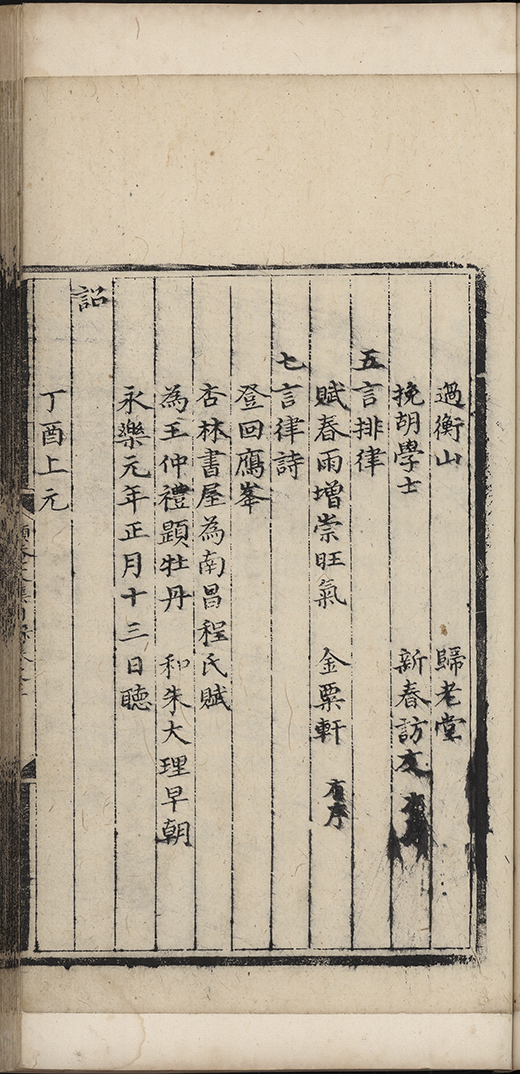 過衡山　歸老堂
挽胡學士　新春訪友
五言排律
賦春雨增崇旺氣　金粟軒　有序
七言律詩
登回鴈峯
杏林書屋為南昌程氏賦
為王仲禮題牡丹　和朱大理早朝
永樂元年正月十三日聽
詔
丁酉上元